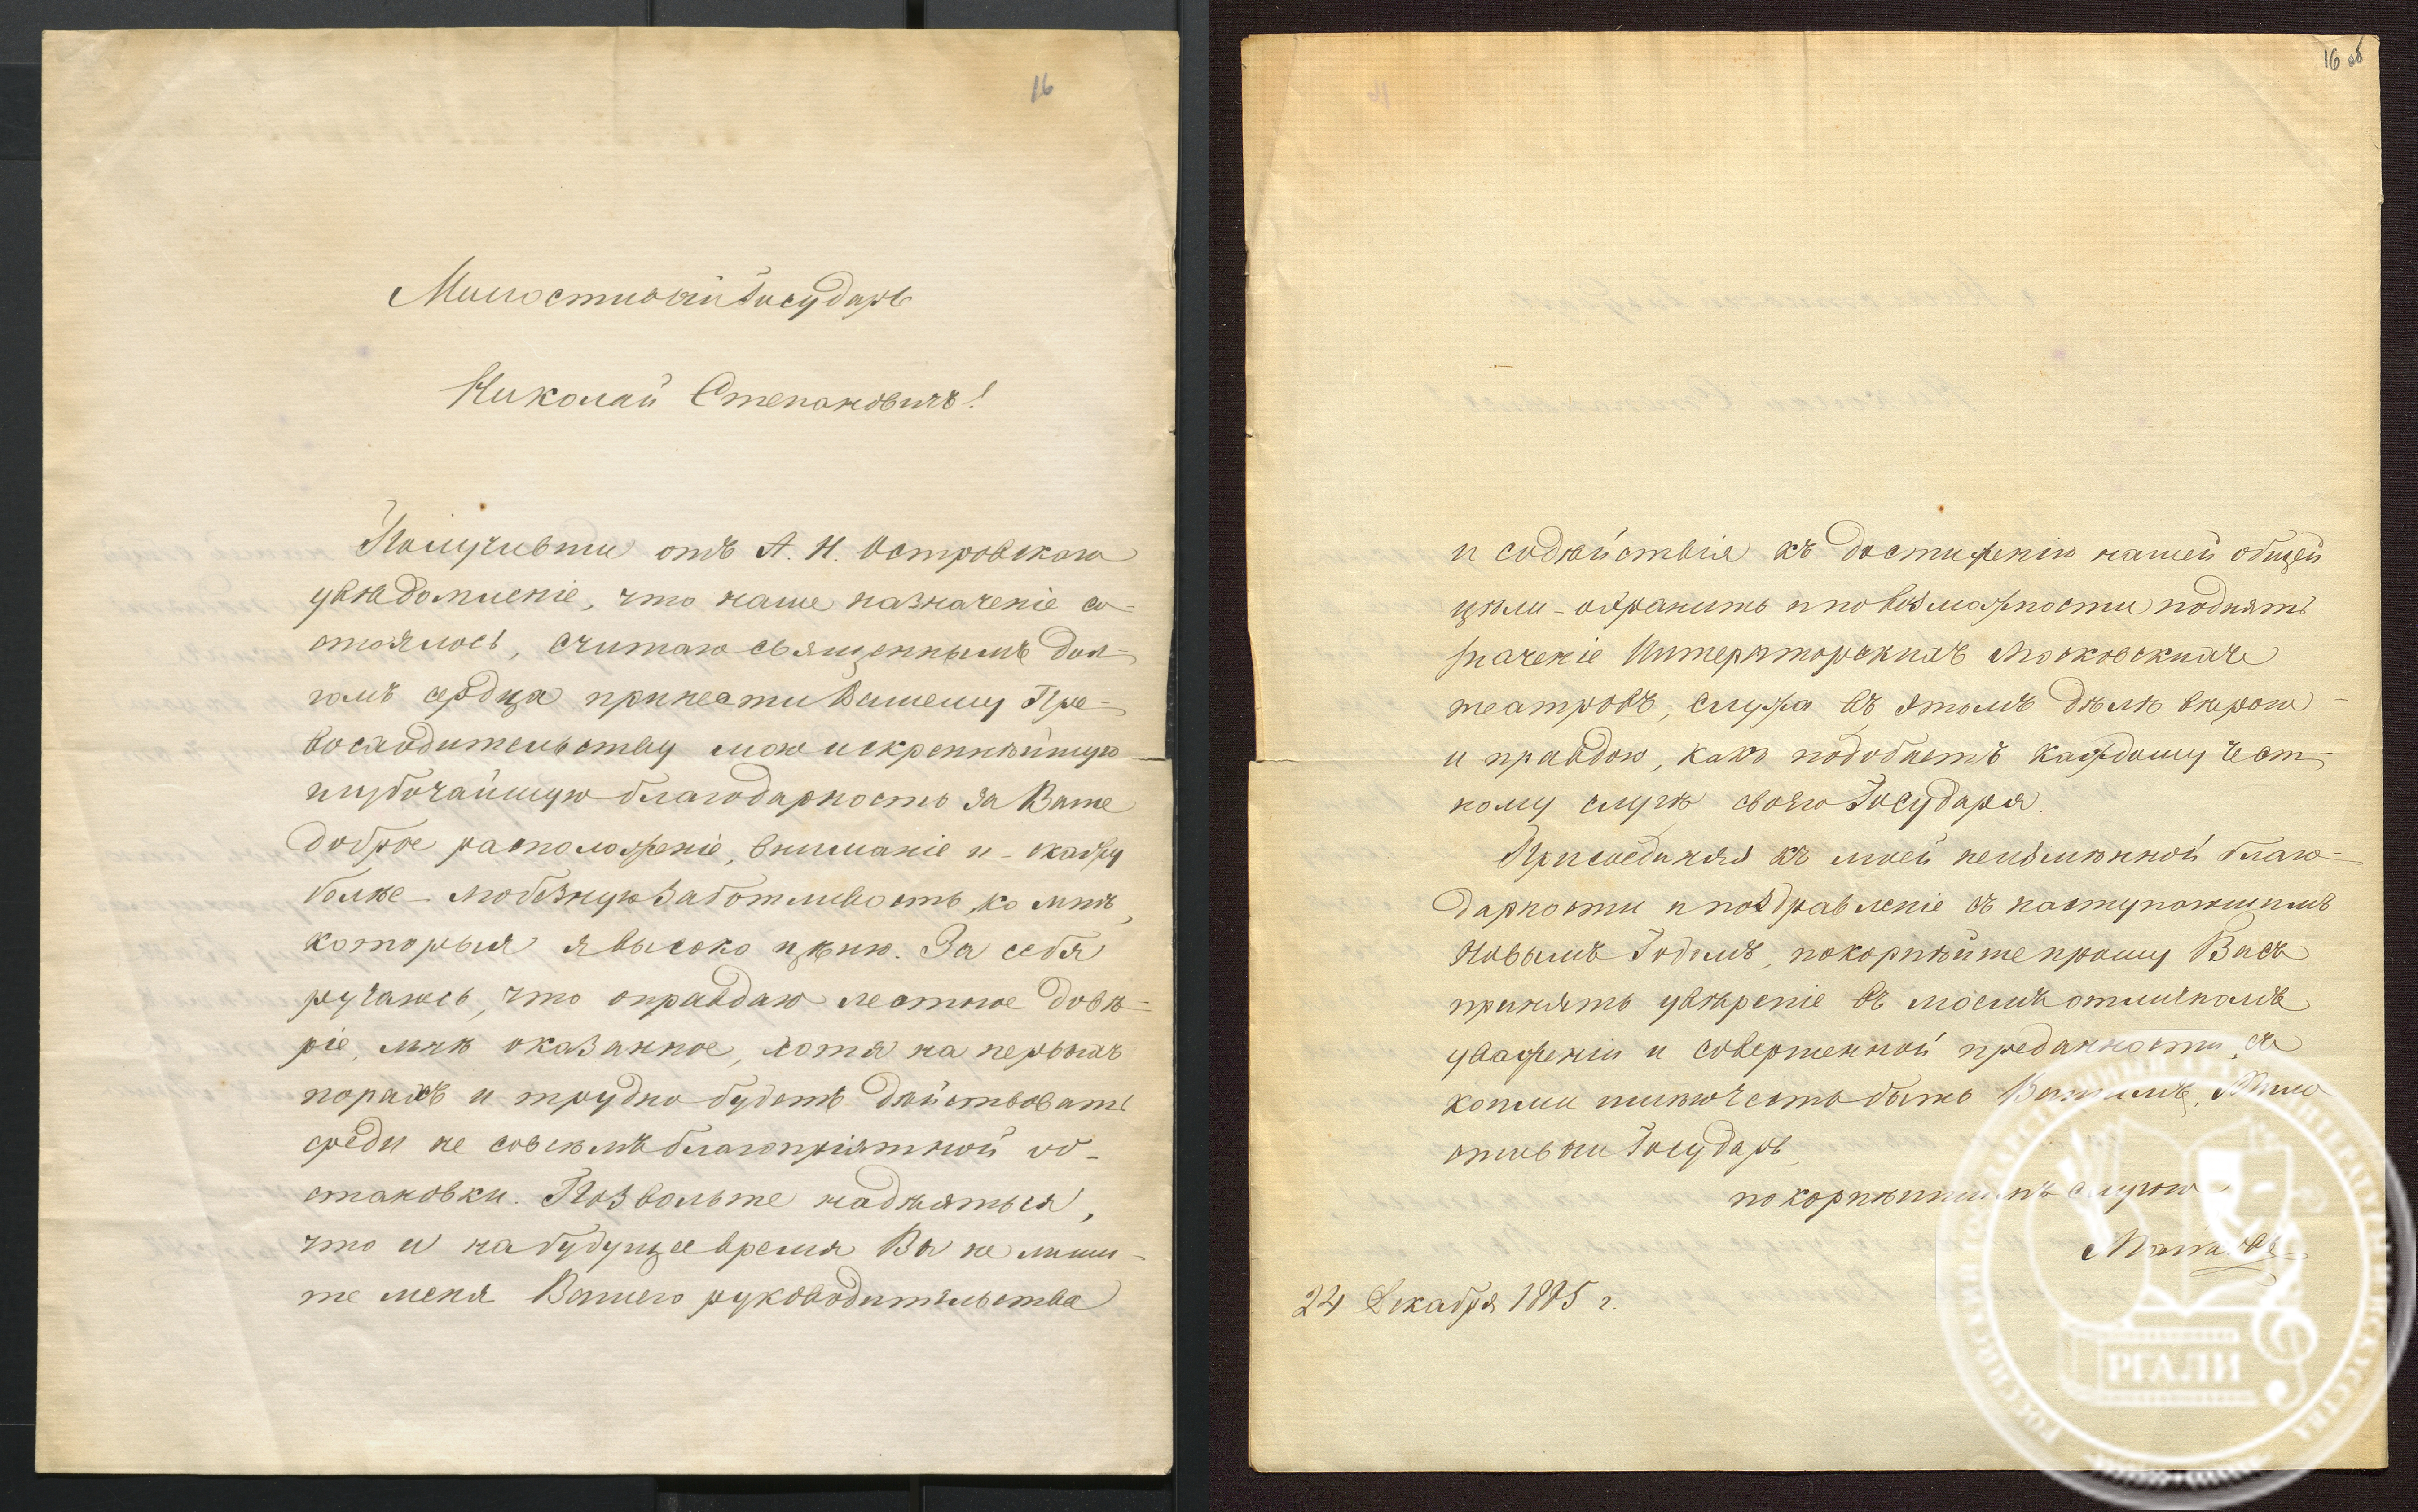 16
Милостивый Государь
Николай Степановичъ!
Получивши отъ А. Н. Островскаго
увѣдомленіе, что наше назначеніе со-
стоялось, считаю священнымъ дол-
гомъ сердца принести Вашему Пре-
восходительству мою искреннѣйшую
глубочайшую благодарность за Ваше
доброе расположеніе, вниманіе и - скажу
болѣе - любезную заботливость ко мнѣ,
которыя я высоко цѣню. За себя
ручаюсь, что оправдаю лестное довѣ-
ріе, мнѣ оказанное, хотя на первыхъ
порахъ и трудно будетъ дѣйствовать
среди не совсѣмъ благопріятной об-
становки. Позвольте надѣяться,
что и на будущее время Вы не лиши-
те меня Вашего руководительства
16 об
и содѣйствія къ достиженію нашей общей
цѣли - охранить и по возможности поднять
значеніе Императорскихъ Московскихъ
театровъ, служа въ этомъ дѣлѣ вѣрою
и правдою, какъ подобаетъ каждому чест-
ному слугѣ своего Государя.
Присоединяя къ моей неизмѣнной благо-
дарности и поздравленіе съ наступающимъ
Новымъ Годомъ, покорнѣйше прошу Васъ
принять увѣреніе въ моемъ отличномъ
уваженіи и совершенной преданности, съ
коими имѣю честь быть Вашимъ, Мило
стивый Государь
покорнѣйшимъ слугою
Майковъ
24 Декабря 1885 г.
РГАЛИ